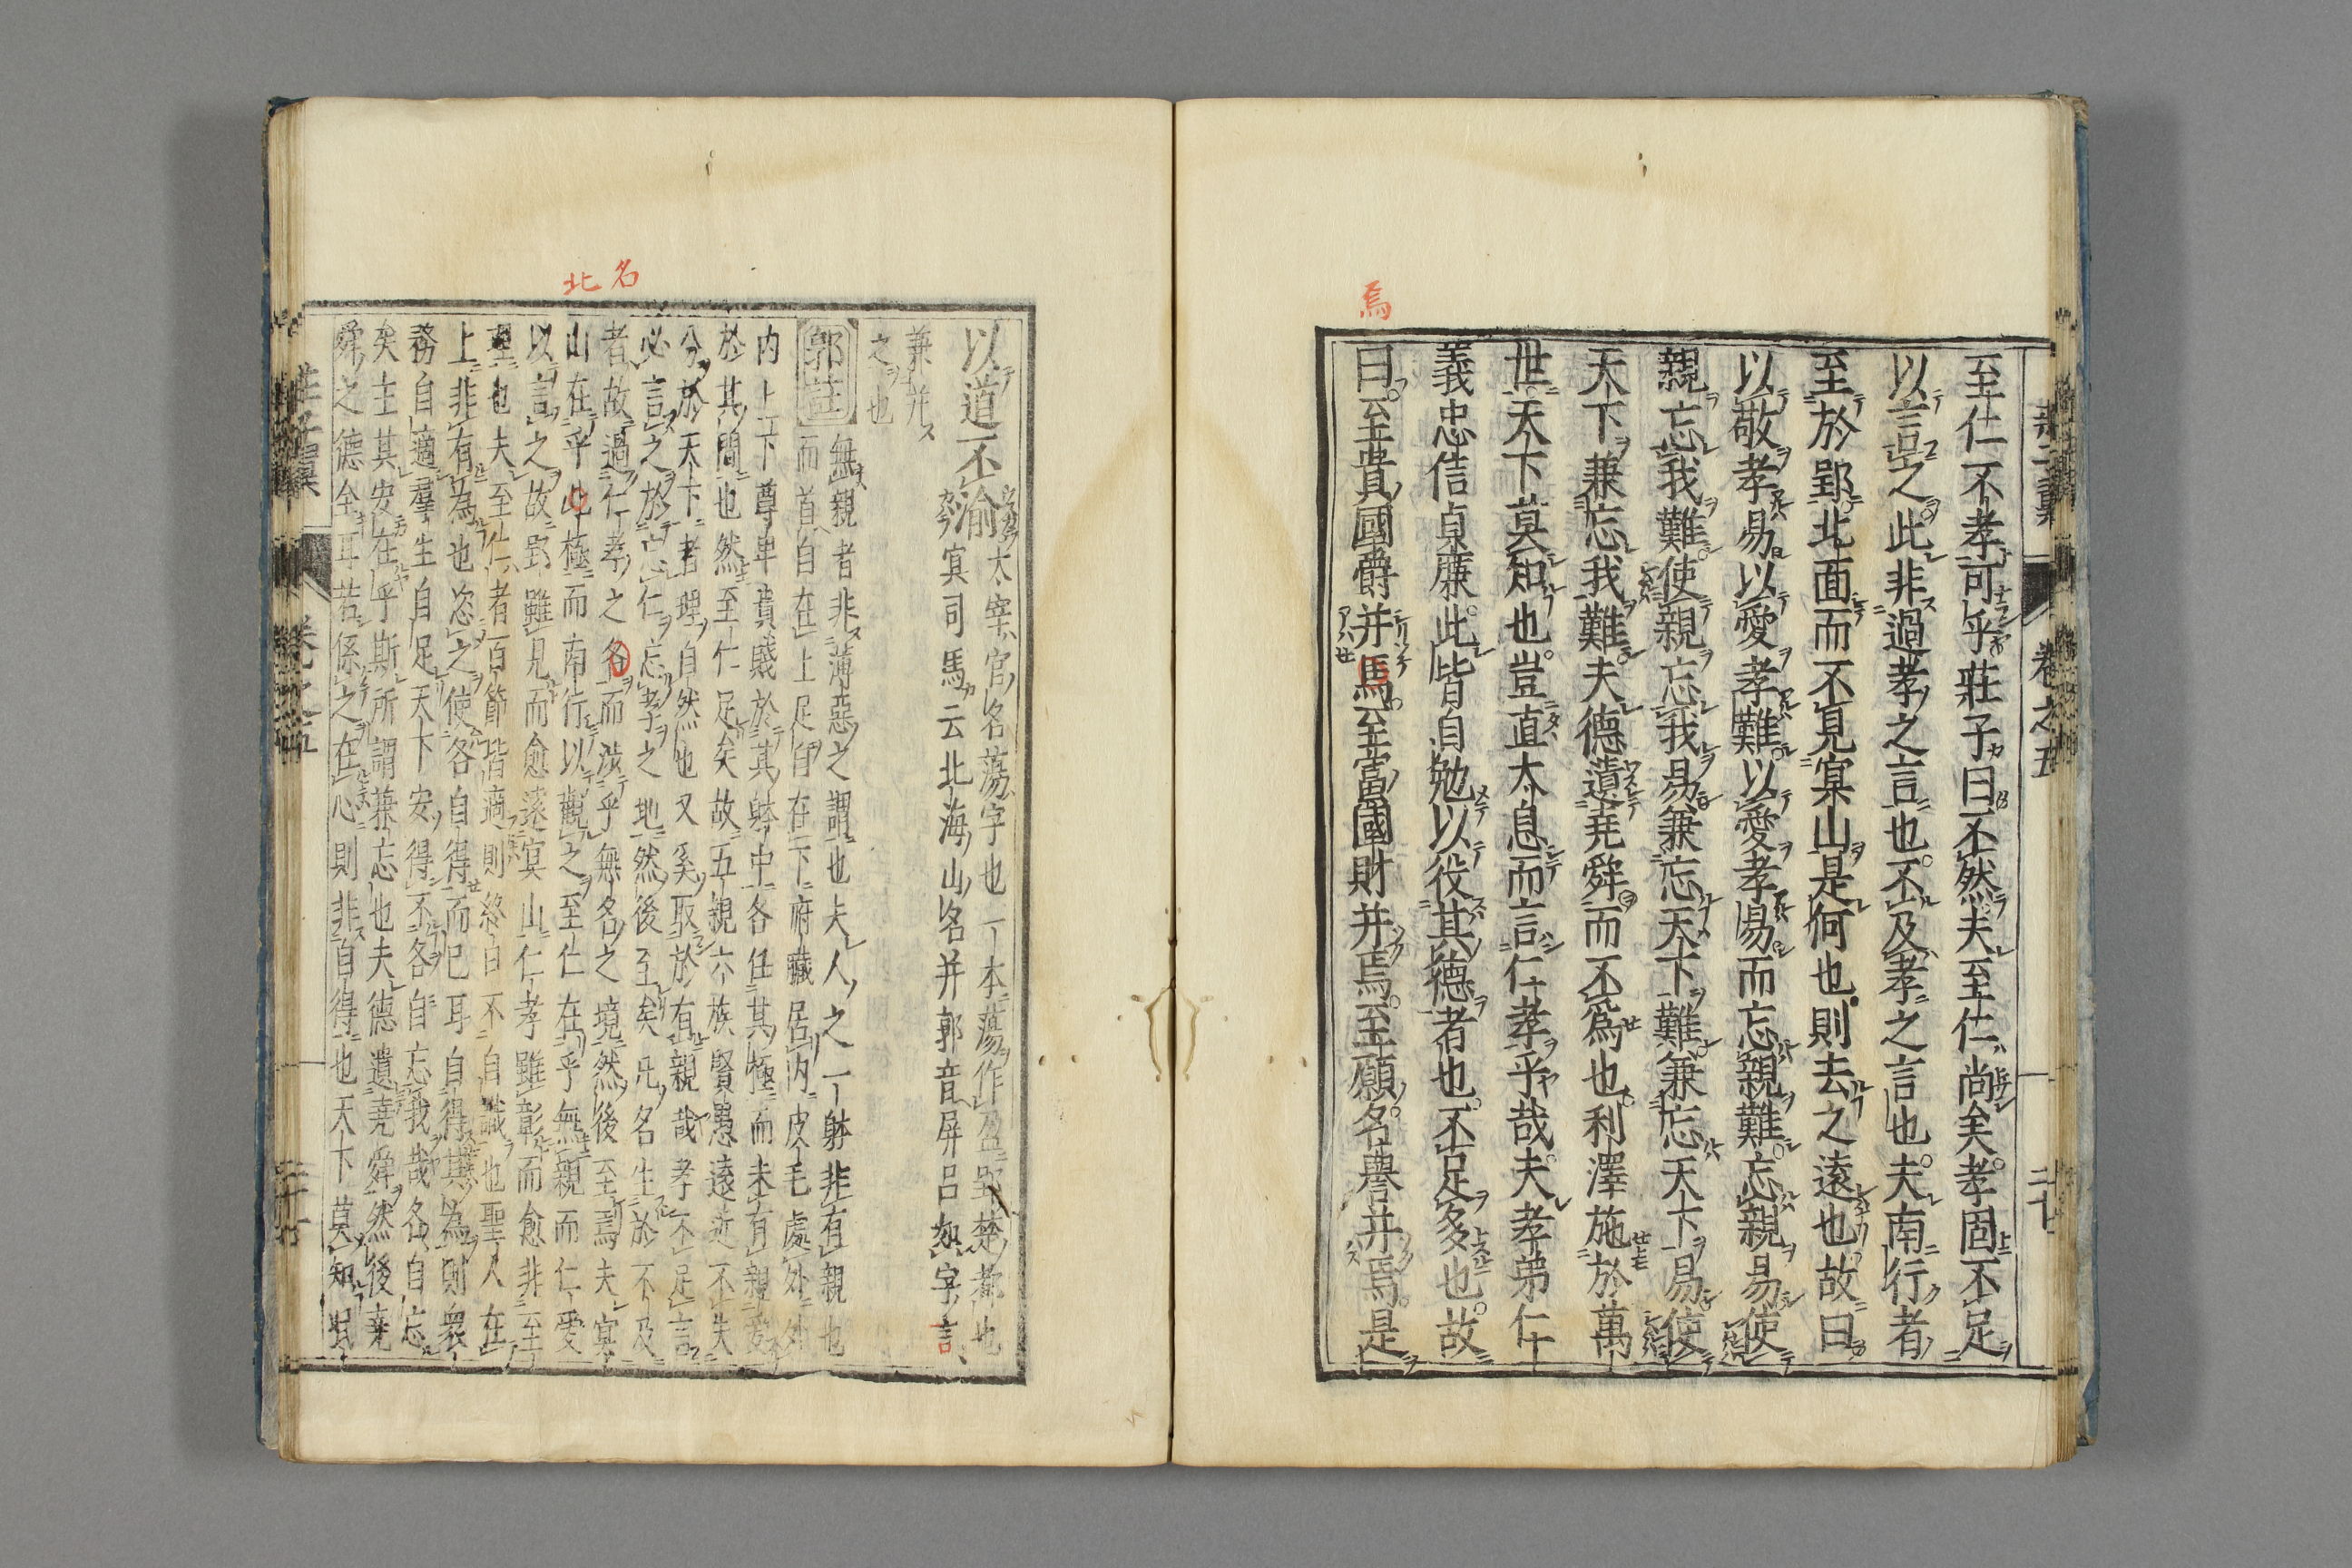 至仁不孝可乎莊子曰不然夫至仁尚矣孝固不足
以言之此非過孝之言也不及孝之言也夫南行者
至於郢北面而不見冥山是何也則去之遠也故曰
以敬孝易以愛孝難以愛孝易而忘親難忘親易使
親忘我難使親忘我易兼忘天下難兼忘天下易使
天下兼忘我難夫德遺堯舜而不為也利澤施於萬
世天下莫知也豈直太息而言仁孝乎哉夫孝弟仁
義忠信貞廉此皆自勉以役其德者也不足多也故
曰至貴國爵并馬至富國財并焉至願名譽并焉是
焉
卷之五
以道不渝
太宰官名蕩字也一本蕩作盈郢楚都也
冥司馬云北海山名并郭音屏呂如字言
兼并
之也
郭註
無親者非薄惡之謂也夫人之一躰非有親也
而首自在上足自在下府藏居內皮毛處外外
內上下尊卑貴賤於其躰中各任其極而未有親愛
於其間也然至仁足矣故五親六族賢愚遠近不失
分於天下者理自然也又奚取於有親哉孝不足言
必言之於忘仁忘孝之地然後至矣凡名生於不及
者故過仁孝之各而涉乎無名之境然後至焉夫冥
山在乎此極而南行以觀之至仁在乎無親而仁愛
以言之故郢雖見而愈遠冥山仁孝雖彰而愈非至
理也夫至仁者百節皆適則終日不自識也聖人在
上非有為也恣之使各自得而已耳自得其為則衆
務自適羣生自足天下安得不各自忘我哉各自忘
矣主其安在乎斯所謂兼忘也夫德遺堯舜然後堯
舜之德全耳若係之在心則非自得也天下莫知泯
名
北
卷之五